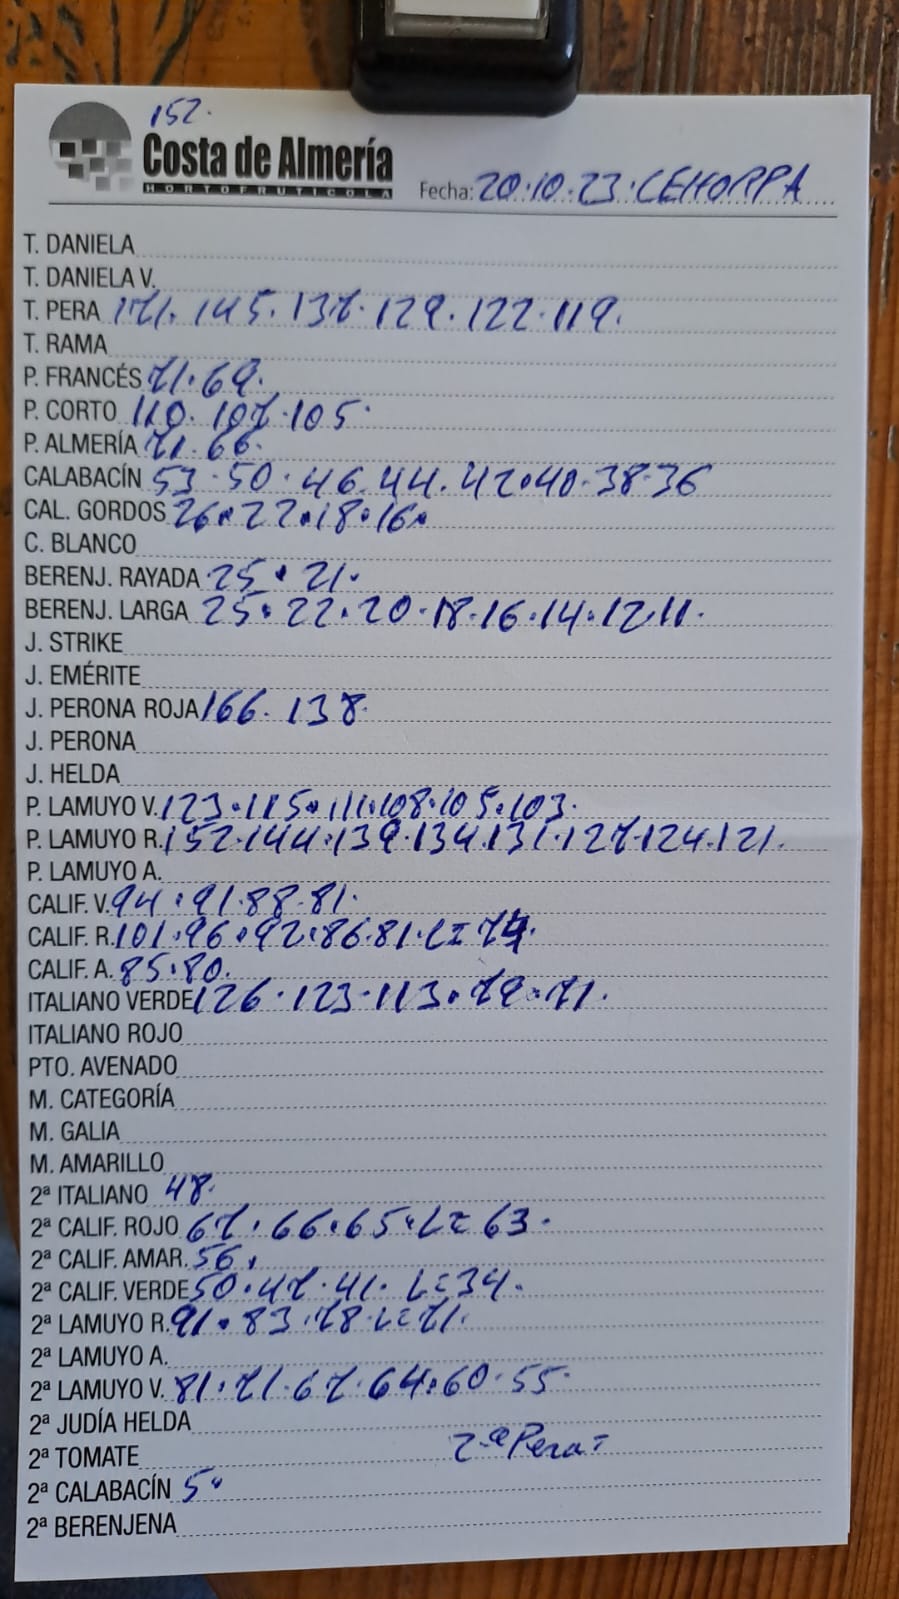 152.
Costa de Almería
HORTOFRUTICOLA
Fecha: 20.10.23. CEHORPA
T. DANIELA
T. DANIELA V.
T. PERA 171. 145. 137. 129. 122. 119.
T. RAMA
P. FRANCÉS 71. 69.
P. CORTO 110. 107. 105.
P. ALMERÍA 71. 66.
CALABACÍN 53. 50. 46. 44. 42. 40. 38. 36
CAL. GORDOS 26. 22. 18. 16.
C. BLANCO
BERENJ. RAYADA 25. 21.
BERENJ. LARGA 25. 22. 20. 18. 16. 14. 12. 11.
J. STRIKE
J. EMÉRITE
J. PERONA ROJA 166. 138.
J. PERONA
J. HELDA
P. LAMUYO V. 123. 115. 111. 108. 105. 103.
P. LAMUYO R. 152. 144. 139. 134. 131. 127. 124. 121.
P. LAMUYO A.
CALIF. V. 94. 91. 88. 81.
CALIF. R. 101. 96. 92. 86. 81. L=
CALIF. A. 85. 80.
ITALIANO VERDE 126. 123. 113. 79. 71.
ITALIANO ROJO
PTO. AVENADO
M. CATEGORÍA
M. GALIA
M. AMARILLO
2ª ITALIANO 48.
2ª CALIF. ROJO 67. 66. 65. L=63.
2ª CALIF. AMAR. 56.
2ª CALIF. VERDE 50. 47. 41. L=34.
2ª LAMUYO R. 91. 83. 78. L=71.
2ª LAMUYO A.
2ª LAMUYO V. 81. 71. 67. 64. 60. 55.
2ª JUDÍA HELDA
2ª TOMATE 2ª Pera=
2ª CALABACÍN 5.
2ª BERENJENA